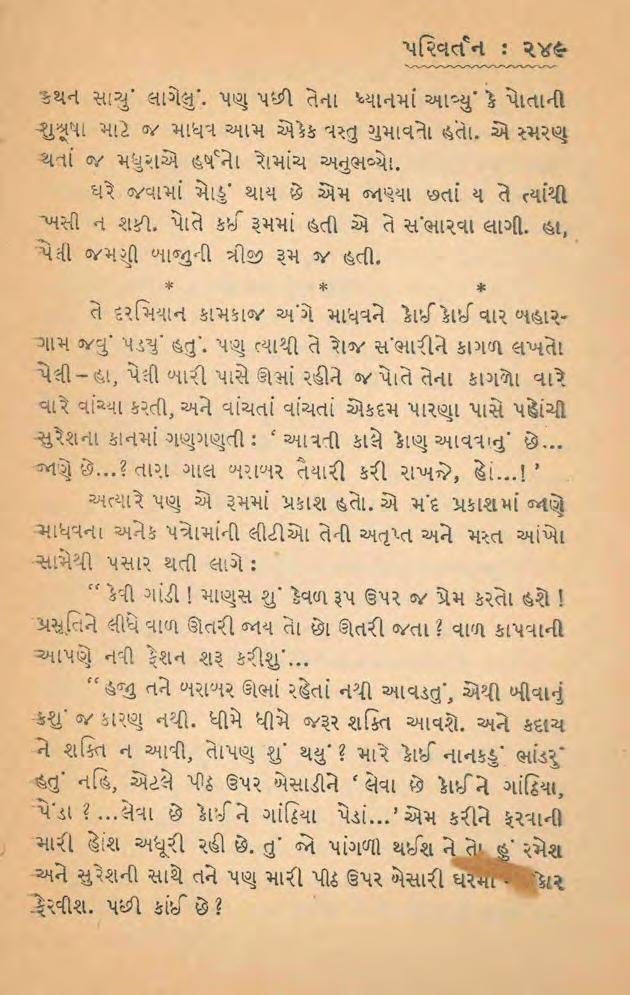 પરિવર્તન : ૨૪૯
કથન સાચું લાગેલું. પણ પછી તેના ધ્યાનમાં આવ્યું કે પોતાની
શુશ્રૂષા માટે જ માધવ આમ એકેક વસ્તુ ગુમાવતો હતો. એ સ્મરણ
થતાં જ મધુરાએ હર્ષનો રોમાંચ અનુભવ્યો.
ઘરે જવામાં મોડું થાય છે એમ જાણ્યા છતાં ય તે ત્યાંથી
ખસી ન શકી. પોતે કઈ રૂમમાં હતી એ તે સંભારવા લાગી. હા,
પેલી જમણી બાજુની ત્રીજી રૂમ જ હતી.
* * *
તે દરમિયાન કામકાજ અંગે માધવને કોઈ કોઈ વાર બહાર-
ગામ જવું પડયું હતું. પણ ત્યાથી તે રોજ સંભારીને કાગળ લખતો
પેલી – હા, પેલી બારી પાસે ઊભાં રહીને જ પોતે તેના કાગળો વારે
વારે વાંચ્યા કરતી, અને વાંચતાં વાંચતાં એકદમ પારણા પાસે પહોંચી
સુરેશના કાનમાં ગણગણતી : ‘ આવતી કાલે કોણ આવવાનું છે...
જાણે છે...? તારા ગાલ બરાબર તૈયારી કરી રાખજે, હોં...! ’
અત્યારે પણ એ રૂમમાં પ્રકાશ હતો. એ મંદ પ્રકાશમાં જાણે
માધવના અનેક પત્રોમાંની લીટીઓ તેની અતૃપ્ત અને મસ્ત આંખો
સામેથી પસાર થતી લાગે :
“ કેવી ગાંડી ! માણસ શું કેવળ રૂપ ઉપર જ પ્રેમ કરતો હશે !
પ્રસૂતિને લીધે વાળ ઊતરી જાય તો છો ઊતરી જતા ? વાળ કાપવાની
આપણે નવી ફેશન શરૂ કરીશું...
“ હજુ તને બરાબર ઊભાં રહેતાં નથી આવડતું, એથી બીવાનું
કશું જ કારણ નથી. ધીમે ધીમે જરૂર શક્તિ આવશે. અને કદાચ
ને શક્તિ ન આવી, તોપણ શું થયું ? મારે કોઈ નાનકડું ભાંડરું
હતું નહિ, એટલે પીઠ ઉપર બેસાડીને ‘ લેવા છે કોઈને ગાંઠિયા,
પેંડા ? ...લેવા છે કોઈને ગાંઠિયા પેડાં...’ એમ કરીને ફરવાની
મારી હોંશ અધૂરી રહી છે. તું જો પાંગળી થઈશ ને તો હું રમેશ
અને સુરેશની સાથે તને પણ મારી પીઠ ઉપર બેસારી ઘરમાં
ફેરવીશ. પછી કાંઈ છે ?